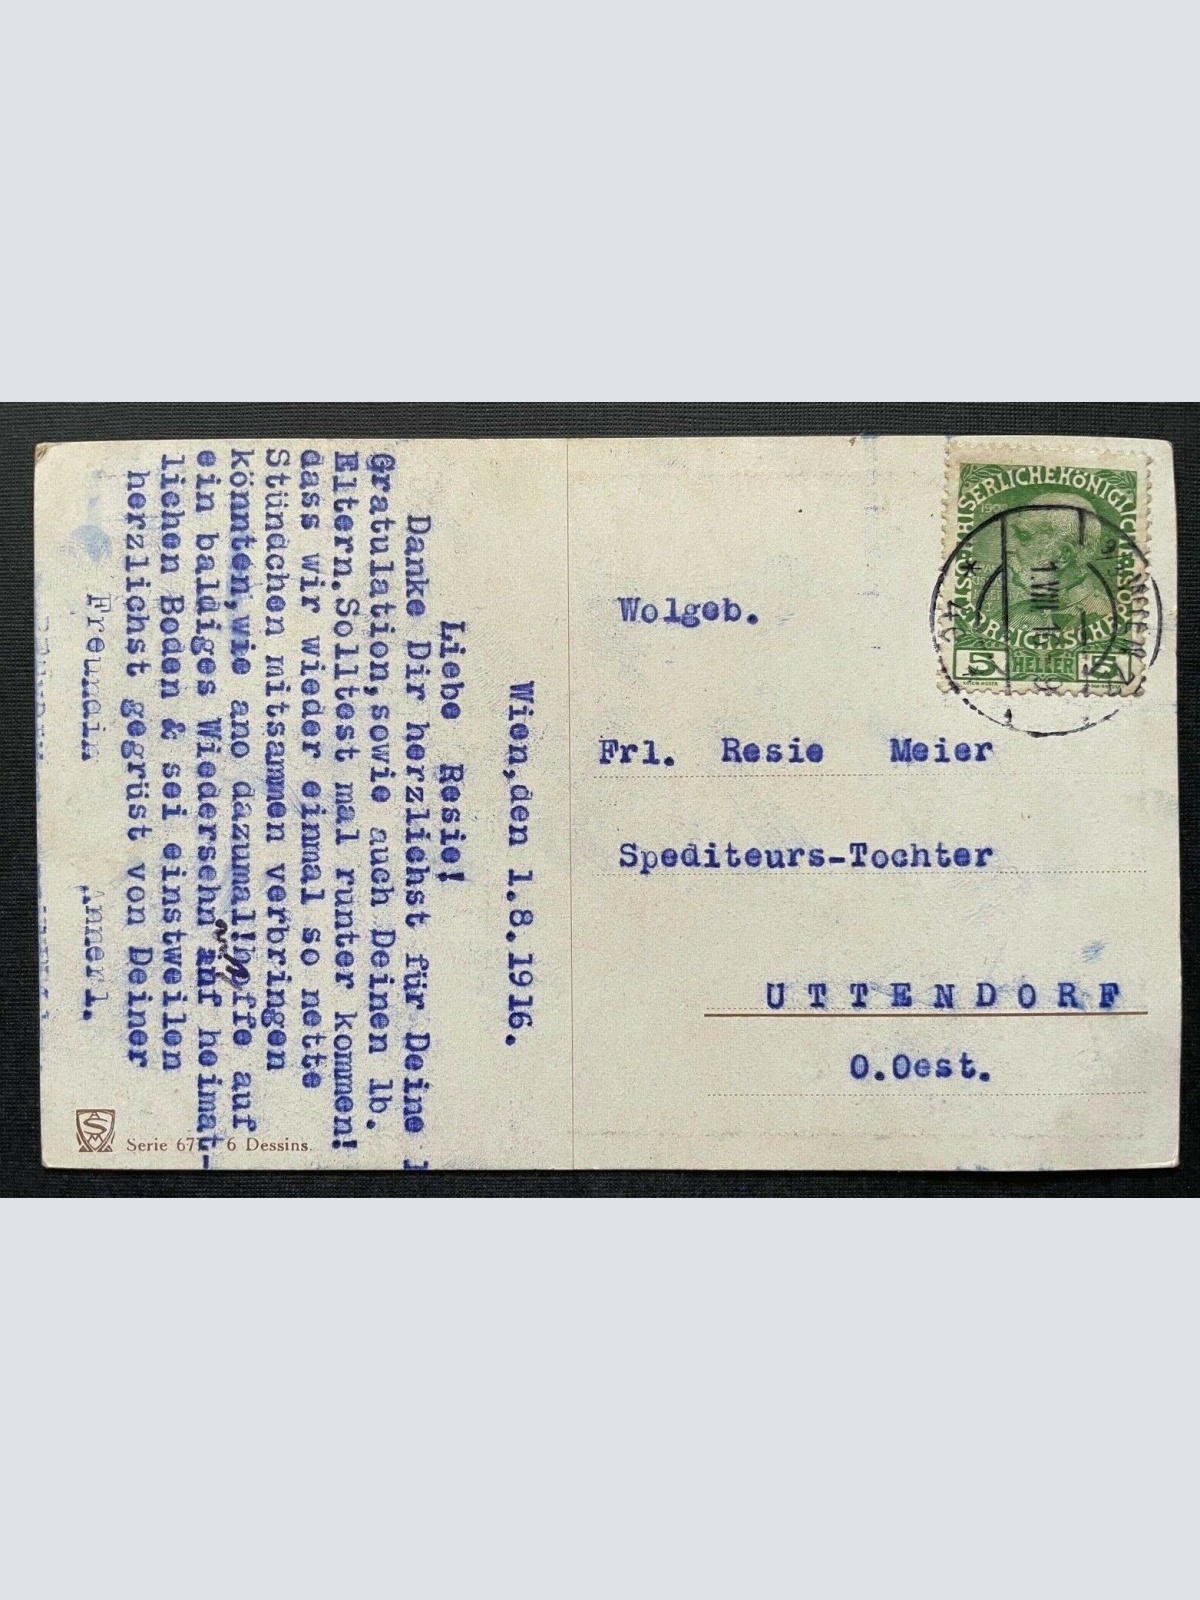 Wien,den 1.8.1916.
Liebe Resie!
Danke Dir herzlichst für Deine l
Gratulation,sowie auch Deinen lb.
Eltern.Solltest mal runter kommen!
dass wir wieder einmal so nette
Stündchen mitsammen verbringen
könnten,wie ano dazumal!hoffe auf
ein baldiges Wiedersehn auf heimat-
lichen Boden & sei einstweilen
herzlichst gegrüst von Deiner
Freundin Annerl.
Serie 6 Dessins.
KAISERLICHEKÖNIGLICHE ÖSTERREICHISCHE POST
5 HELLER 5
1.VIII.16
Wolgeb.
Frl. Resie Meier
Spediteurs-Tochter
UTTENDORF
O.Oest.